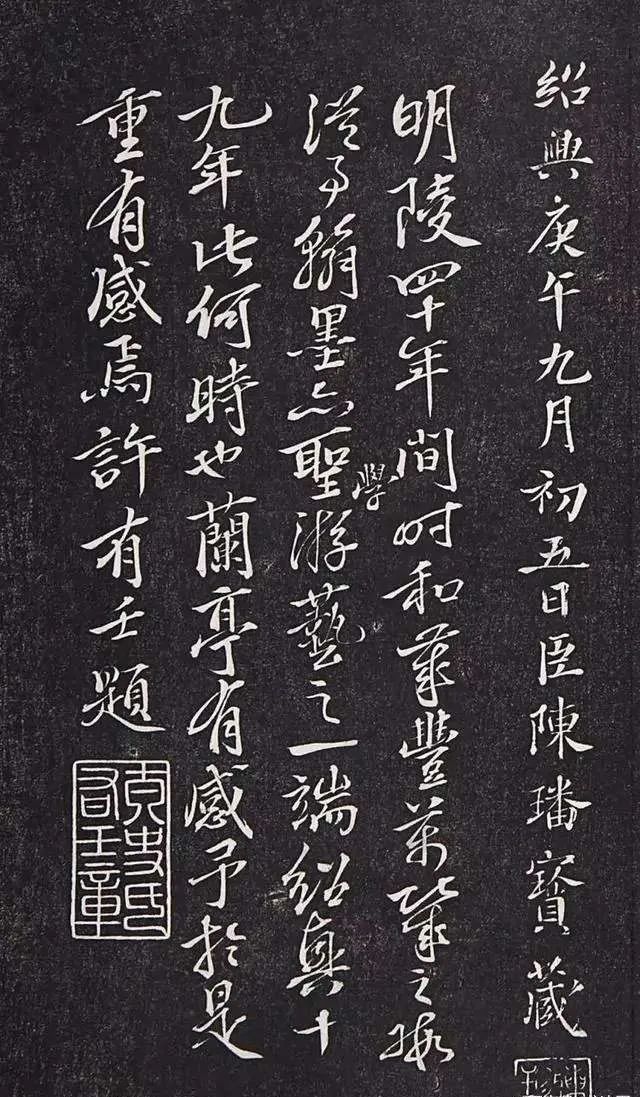 紹興庚午九月初五日臣陳璠寳藏
明陵四十年間時和歲豐萬幾之暇
從事翰墨亦聖學游藝之一端紹興十
九年此何時也蘭亭有感予於是
重有感焉許有壬題